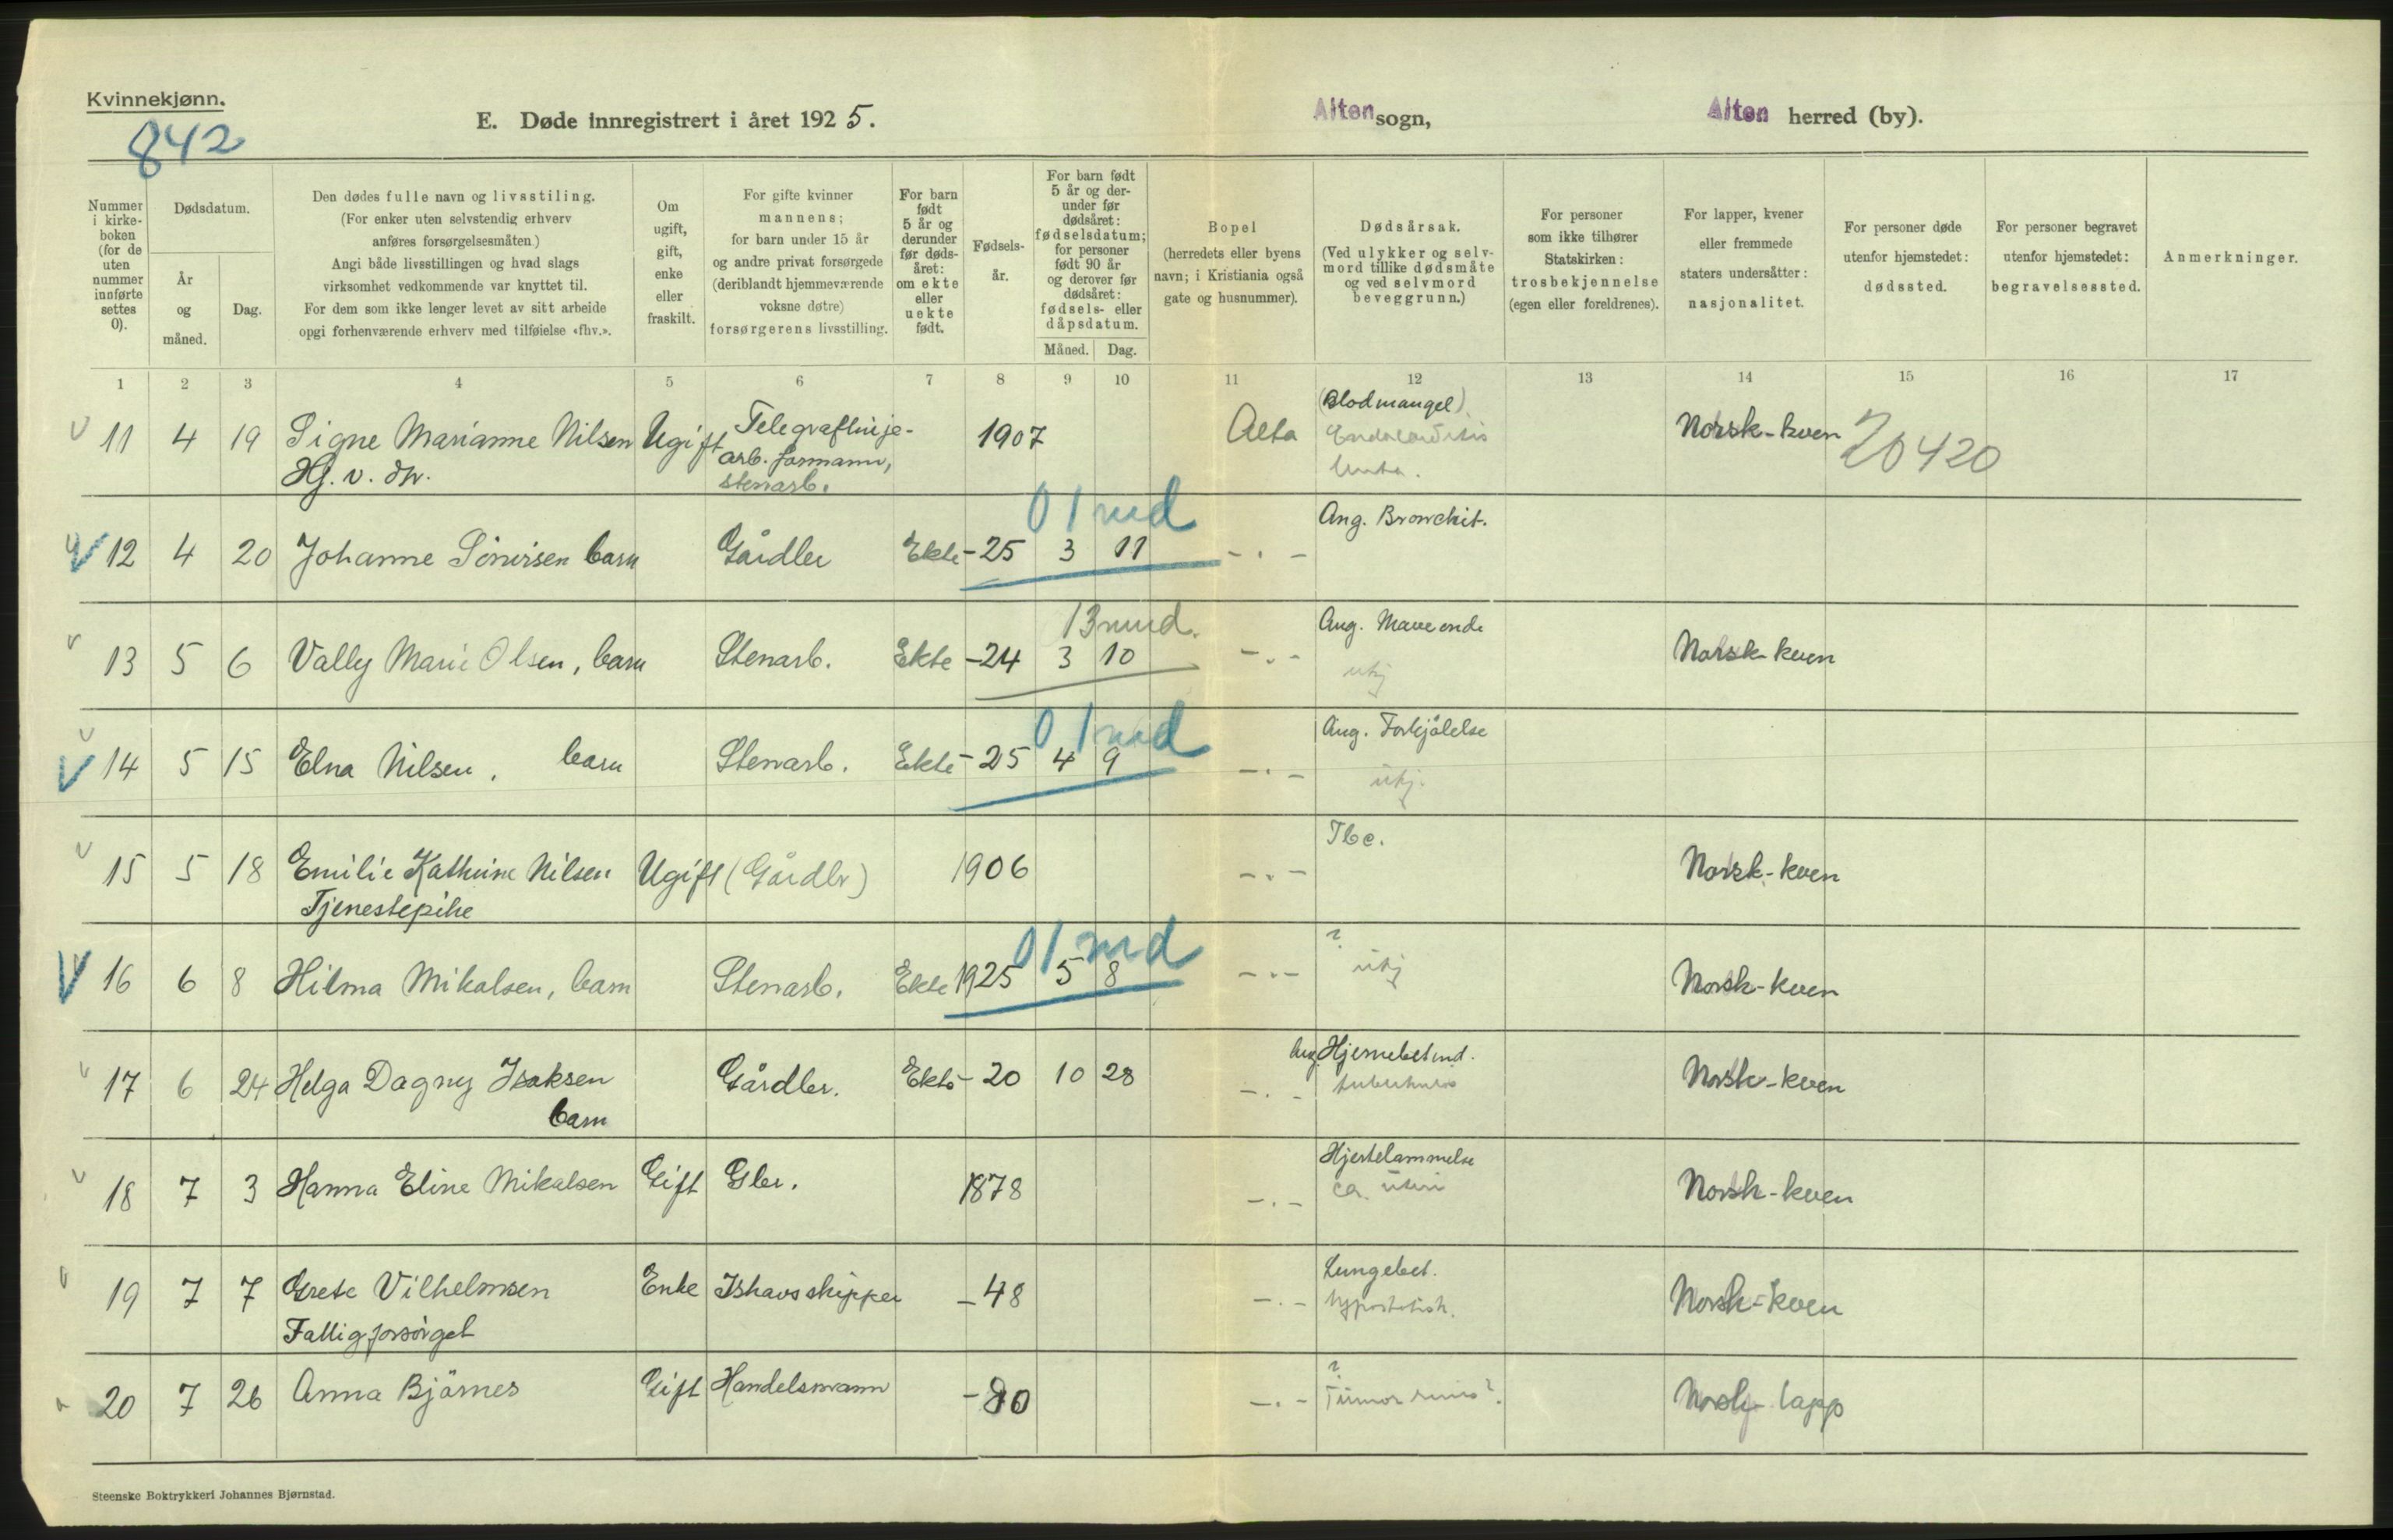 Kvinnekjønn.
842
E. Døde innregistrert i året 1925.
Alten sogn,
Alten herred (by).
Nummer i kirke-boken (for de uten nummer innførte settes 0).
Dødsdatum.
År og måned.
Dag.
Den dødes fulle navn og livsstiling.
(For enker uten selvstendig erhverv
anføres forsørgelsesmåten.)
Angi både livsstillingen og hvad slags
virksomhet vedkommende var knyttet til.
For dem som ikke lenger levet av sitt arbeide
opgi forhenværende erhverv med tilføielse «fhv.».
Om ugift, gift, enke eller fraskilt.
For gifte kvinner
mannens;
for barn under 15 år
og andre privat forsørgede
(deriblandt hjemmeværende
voksne døtre)
forsørgerens livsstilling.
For barn født 5 år og derunder før døds-året: om ekte eller uekte født.
Fødsels-år.
For barn født 5 år og der-under før dødsåret: fødselsdatum; for personer født 90 år og derover før dødsåret: fødsels- eller dåpsdatum.
Måned.
Dag.
Bopel
(herredets eller byens
navn; i Kristiania også
gate og husnummer).
Dødsårsak.
(Ved ulykker og selv-
mord tillike dødsmåte
og ved selvmord
beveggrunn.)
For personer
som ikke tilhører
Statskirken:
trosbekjennelse
(egen eller foreldrenes).
For lapper, kvener
eller fremmede
staters undersåtter:
nasjonalitet.
For personer døde
utenfor hjemstedet:
dødssted.
For personer begravet
utenfor hjemstedet:
begravelsessted.
Anmerkninger.
1 2 3 4 5 6 7 8 9 10 11 12 13 14 15 16 17
11 4 19 Signe Marianne Nilsen Ugift Telegraflinje- 1907 Alta (Blodmangel) Norsk-kven 20420
Hj. v. dtr. arb. formann, Endocarditis
stenarb. lenta.
01 md
12 4 20 Johanne Sönvisen barn Gårdbr Ekte -25 3 11 -.- Ang. Bronchit.
13 mnd.
13 5 6 Vally Marie Olsen, barn Stenarb. Ekte -24 3 10 -.- Ang. Maveonde Norsk-kven
ukj
01 md
14 5 15 Elna Nilsen, barn Stenarb. Ekte -25 4 9 -.- Ang. Forkjölelse
ukj.
15 5 18 Emilie Kathrine Nilsen Ugift (Gårdbr) 1906 -.- Tbc. Norsk-kven
Tjenestepike
01 md
16 6 8 Hilma Mikalsen, barn Stenarb. Ekte 1925 5 8 -.- ? Norsk-kven
ukj
17 6 24 Helga Dagny Isaksen Gårdbr. Ekte -20 10 28 -.- Ang. Hjernebetend. Norsk-kven
barn tuberkuløs
18 7 3 Hanna Eline Mikalsen Gift Gbr. 1878 -.- Hjertelammelse Norsk-kven
ca. uteri
19 7 7 Grete Vilhelmsen Enke Ishavsskipper -48 -.- Lungebet. Norsk-kven
Fattigforsörget hypostatisk.
20 7 26 Anna Björnes Gift Handelsmann -80 -.- ? Norsk-lapp
Tumor renis?
Steenske Boktrykkeri Johannes Bjørnstad.